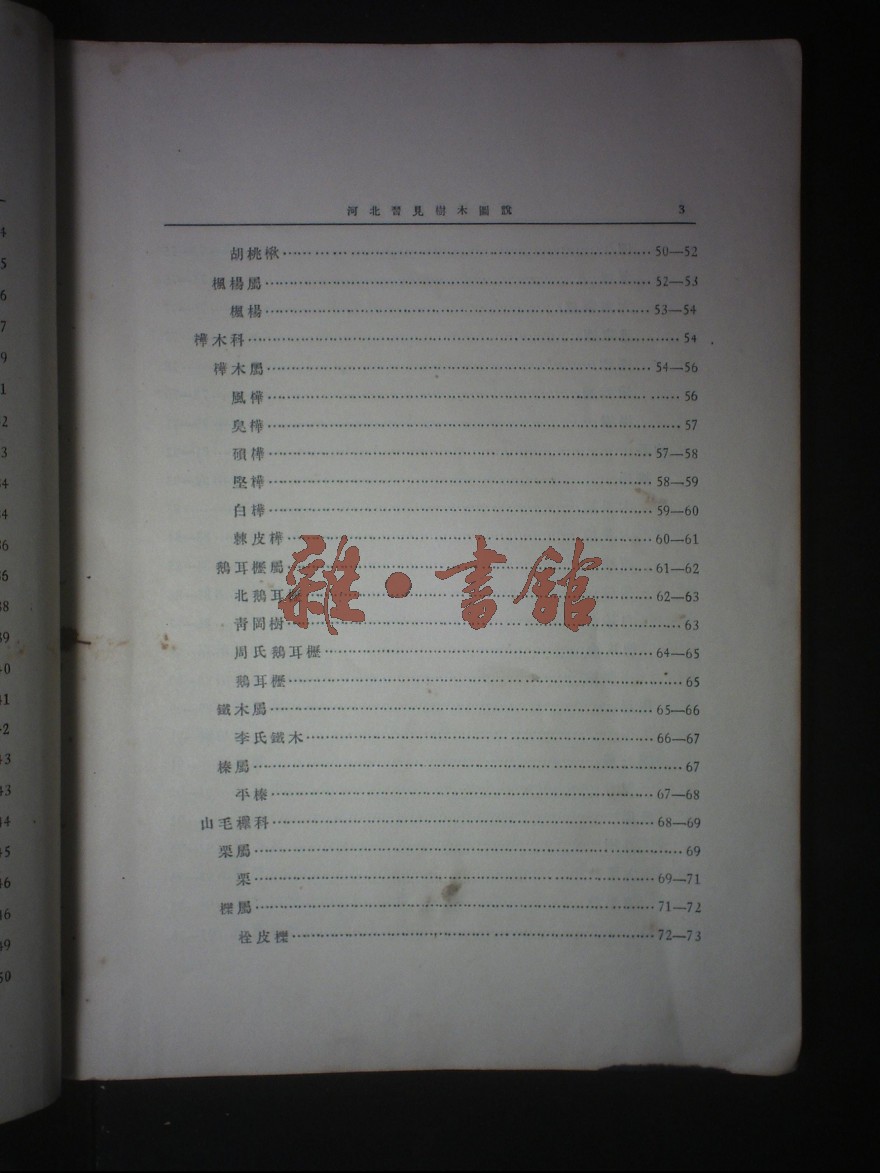 河北習見樹木圖說 3
胡桃楸 50—52
楓楊屬 52—53
楓楊 53—54
樺木科 54
樺木屬 54—56
風樺 56
臭樺 57
碩樺 57—58
堅樺 58—59
白樺 59—60
棘皮樺 60—61
鵝耳櫪屬 61—62
北鵝耳櫪 62—63
青岡樹 63
周氏鵝耳櫪 64—65
鵝耳櫪 65
鐵木屬 65—66
李氏鐵木 66—67
榛屬 67
平榛 67—68
山毛櫸科 68—69
栗屬 69
栗 69—71
櫟屬 71—72
栓皮櫟 72—73
雜·書館